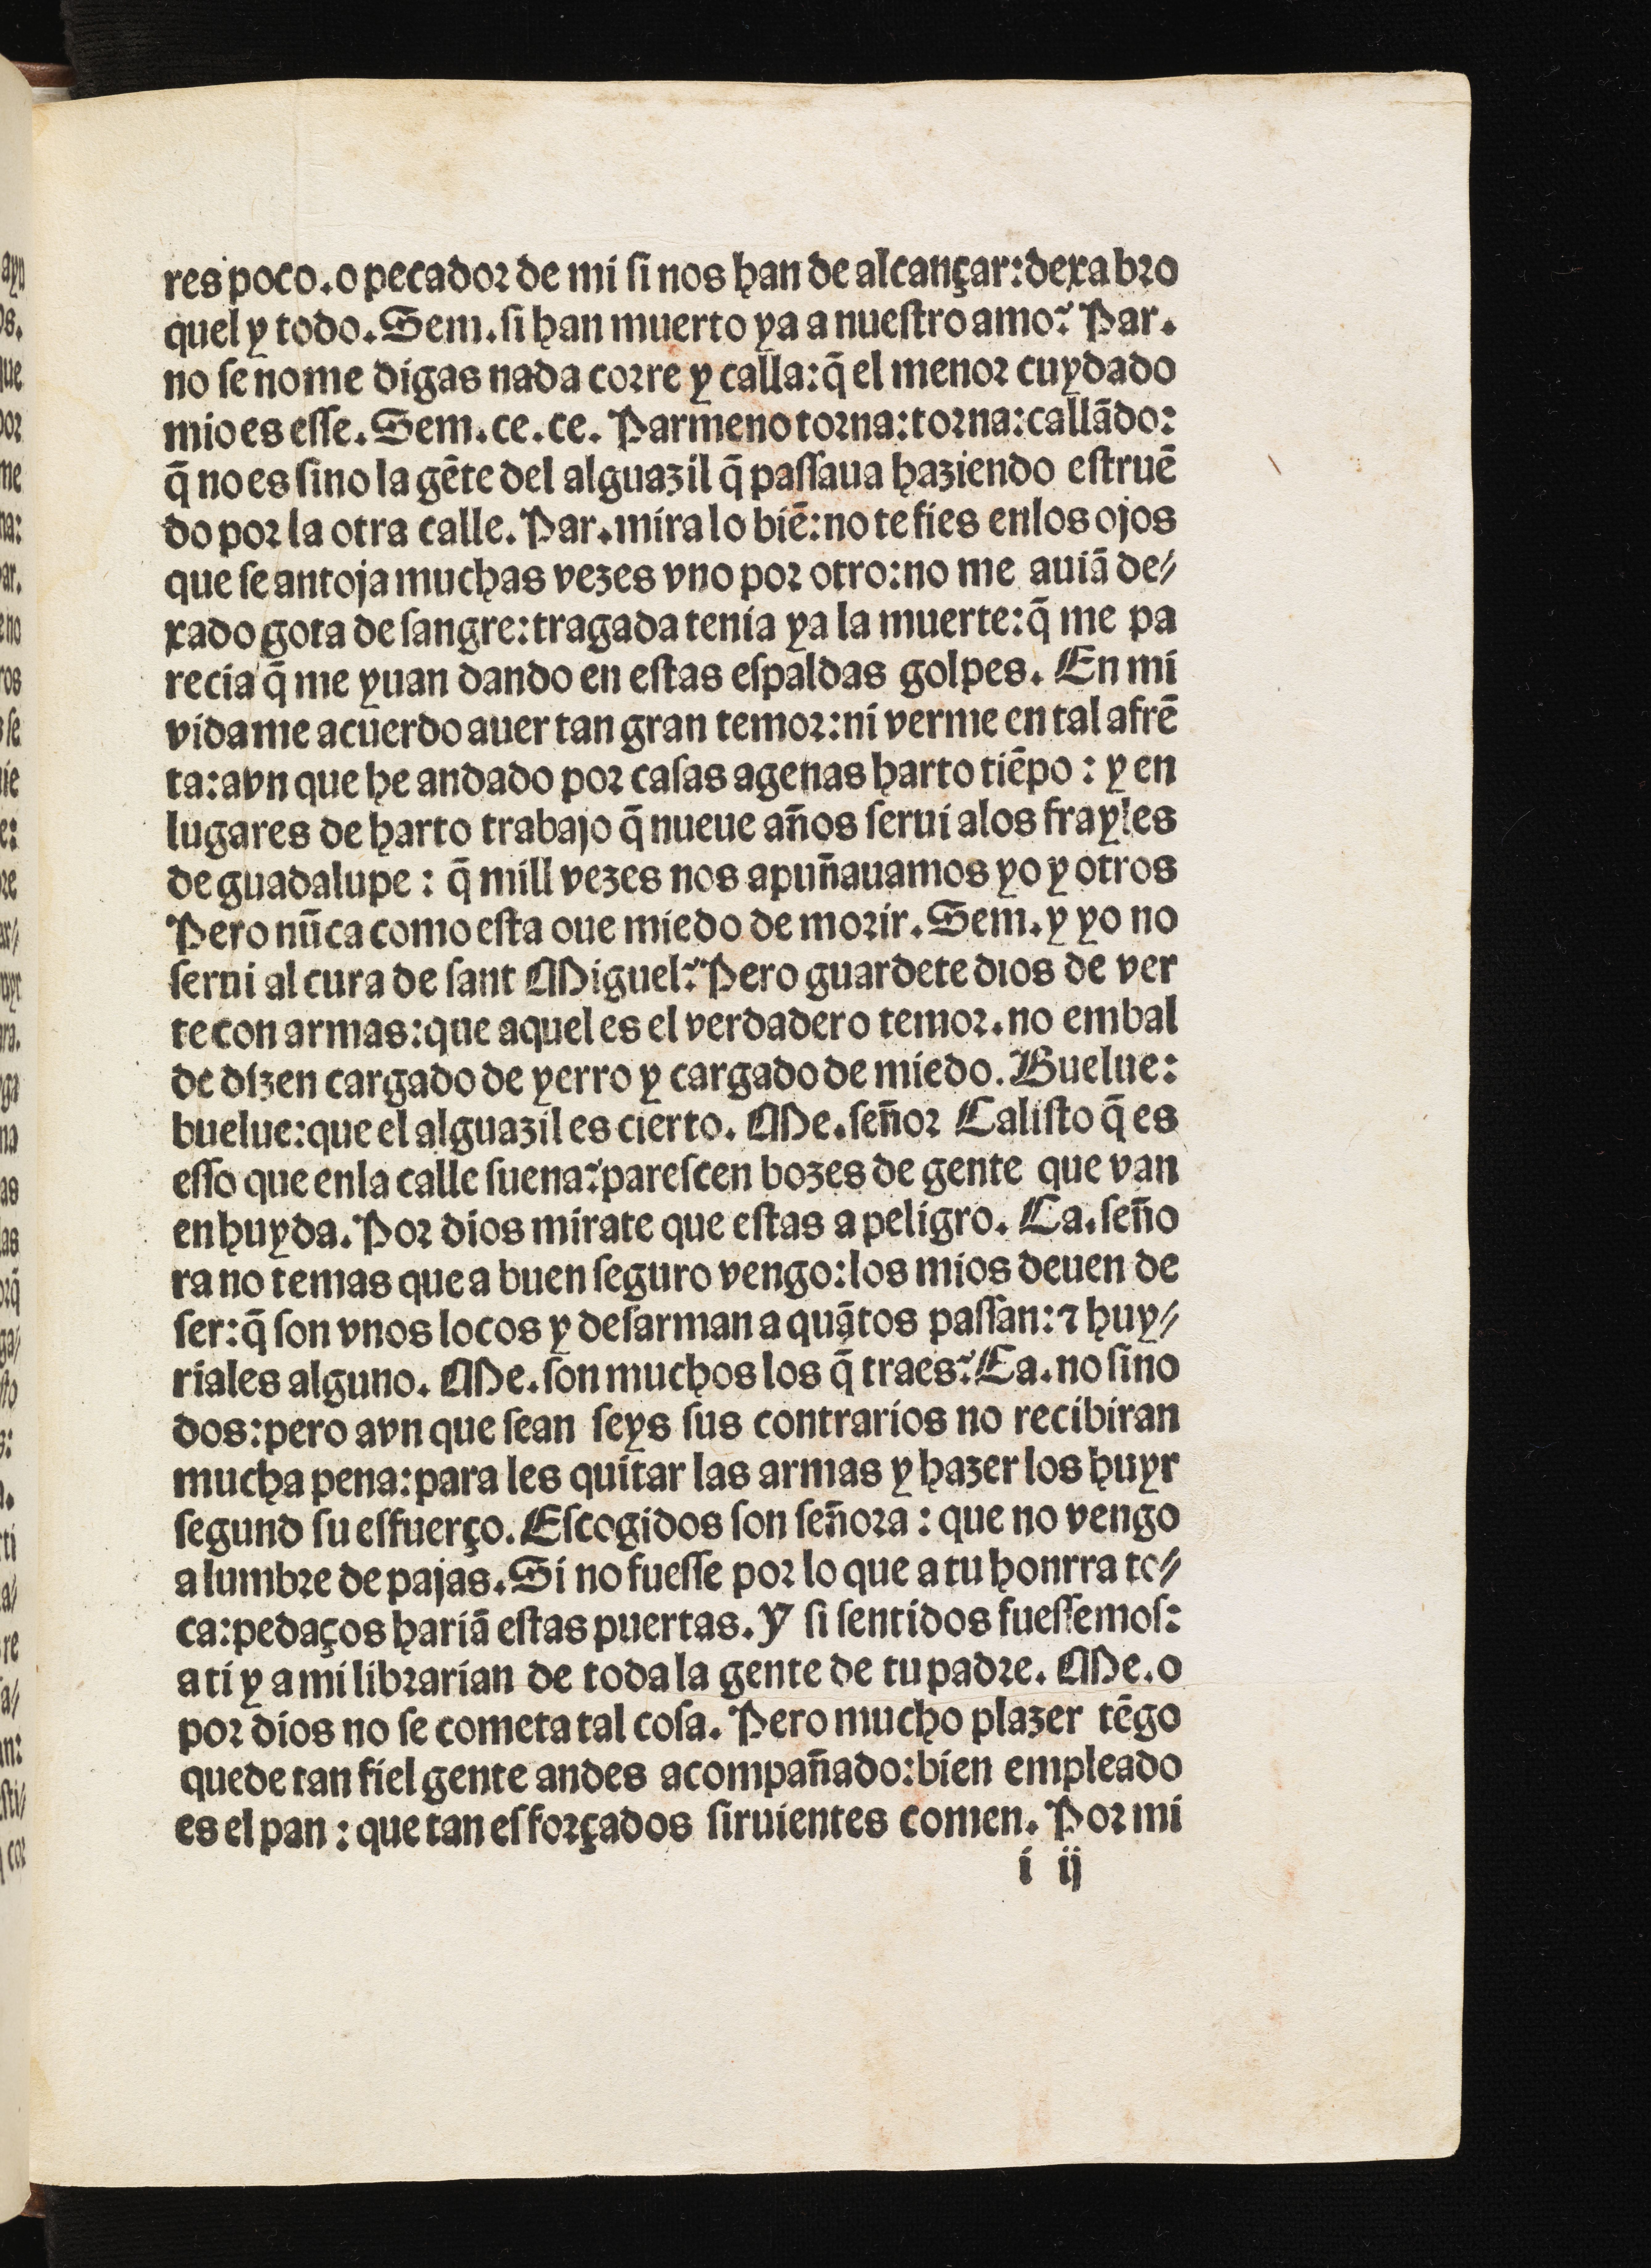 res poco. o pecador de mi ſi nos han de alcançar: dexa bro
quel y todo. Sem. ſi han muerto ya a nueſtro amo? Par.
no ſe no me digas nada corre y calla: q̃ el menor cuydado
mio es eſſe. Sem. ce. ce. Parmeno torna: torna: callãdo:
q̃ no es ſino la gẽte del alguazil q̃ paſſaua haziendo eſtruẽ
do por la otra calle. Par. mira lo biẽ: no te fies enlos ojos
que ſe antoja muchas vezes vno por otro: no me auiã de⸗
xado gota de ſangre: tragada tenia ya la muerte: q̃ me pa
recia q̃ me yuan dando en eſtas eſpaldas golpes. En mi
vida me acuerdo auer tan gran temor: ni verme en tal afrẽ
ta: avn que he andado por caſas agenas harto tiẽpo : y en
lugares de harto trabajo q̃ nueue años ſerui alos frayles
de guadalupe : q̃ mill vezes nos apuñauamos yo y otros
Pero nũca como eſta oue miedo de morir. Sem. y yo no
ſerui al cura de ſant Miguel? Pero guardete dios de ver
te con armas: que aquel es el verdadero temor. no embal
de dizen cargado de yerro y cargado de miedo. Buelue:
buelue: que el alguazil es cierto. Me. ſeñor Caliſto q̃ es
eſſo que enla calle ſuena? pareſcen bozes de gente que van
en huyda. Por dios mirate que eſtas a peligro. Ca. ſeño
ra no temas que a buen ſeguro vengo: los mios deuen de
ſer: q̃ ſon vnos locos y deſarman a quãtos paſſan: ⁊ huy⸗
riales alguno. Me. ſon muchos los q̃ traes? Ca. no ſino
dos: pero avn que ſean ſeys ſus contrarios no recibiran
mucha pena: para les quitar las armas y hazer los huyr
ſegund ſu eſfuerço. Eſcogidos ſon ſeñora : que no vengo
a lumbre de pajas. Si no fueſſe por lo que a tu honrra to⸗
ca: pedaços hariã eſtas puertas. Y ſi ſentidos fueſſemoſ:
a ti y a mi librarian de toda la gente de tu padre. Me. o
por dios no ſe cometa tal coſa. Pero mucho plazer tẽgo
que de tan fiel gente andes acompañado: bien empleado
es el pan : que tan eſforçados ſiruientes comen. Por mi
i ij